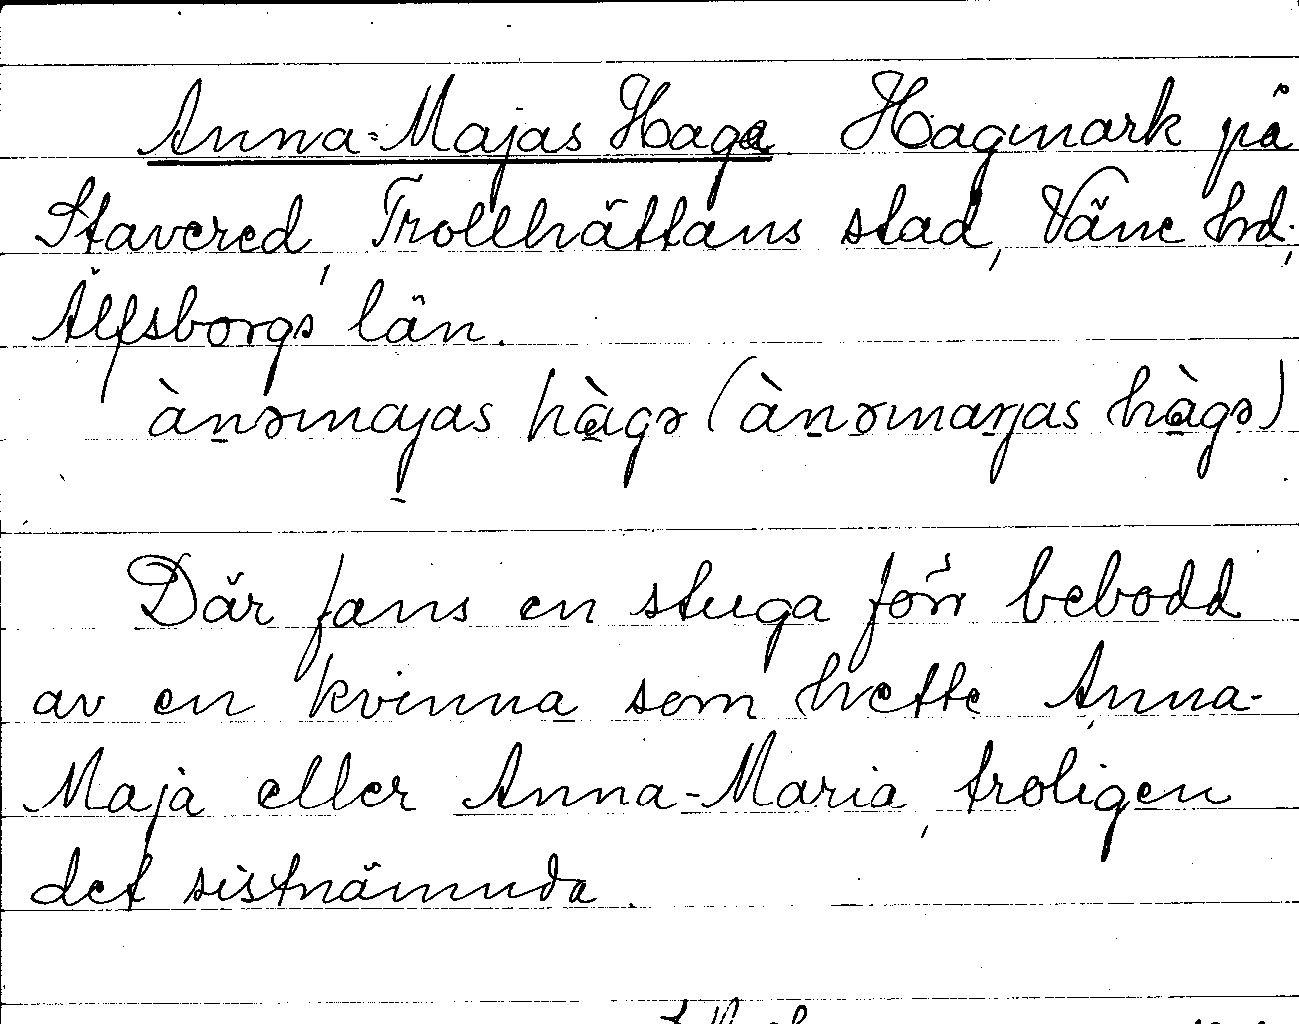 Anna-Majas Haga Hagmark på
Stavered, Trollhättans stad, Väne hd;
Älfsborgs län.
àn̠əmaj̠as hà̠gə (àn̠ə̠maŋ̠as hà̠gə)
Där fans en stuga förr bebodd
av en kvinna som hette Anna-
Maja eller Anna-Maria, troligen
det sistnämnda.